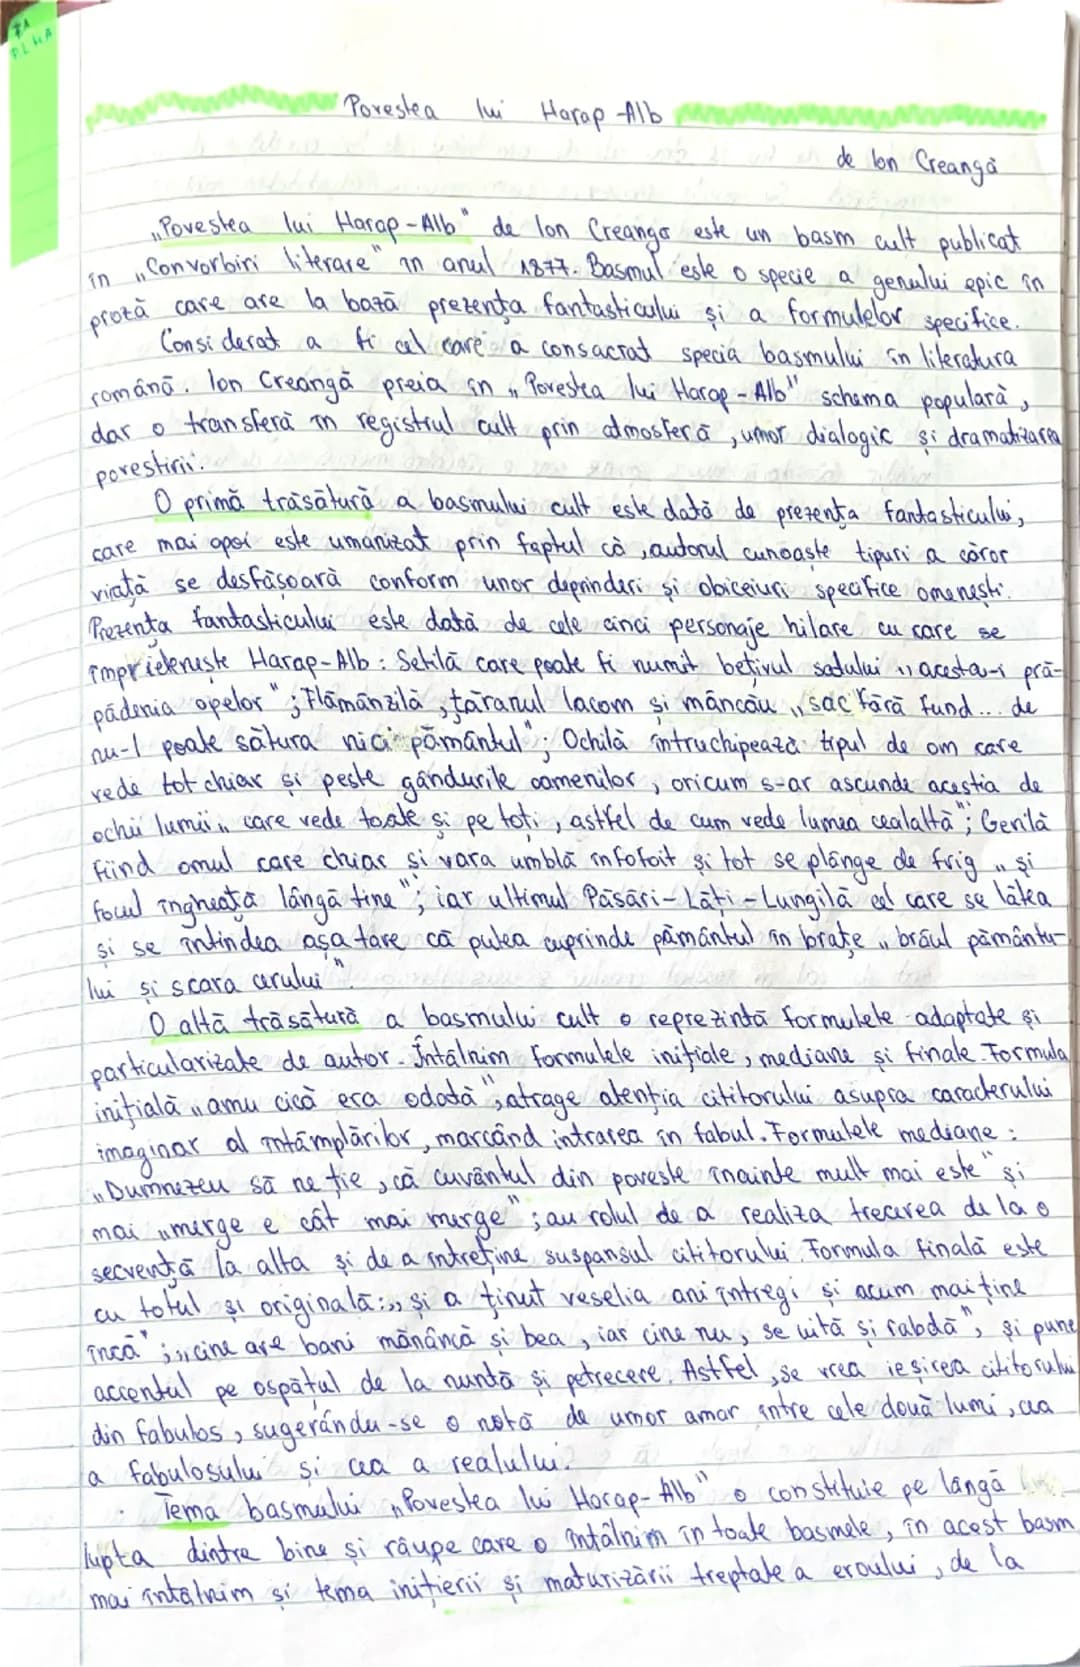 Povestea lui Harap-Alb
de Ion Creangă
„Povestea lui Harap-Alb" de Ion Creangă este un basm cult publicat
în „Convorbiri literare" în anul 1877. Basmul este o specie a genului epic în
proză care are la bază prezența fantasticului și a formulelor specifice.
Considerat a fi cel care a consacrat specia basmului în literatura
română. Ion Creangă preia în „Povestea lui Harap-Alb" schema populară,
dar o transferă în registrul cult prin atmosferă, umor dialogic și dramatizarea
povestirii.
O primă trăsătură a basmului cult este dată de prezența fantasticului,
care mai apoi este umanizat prin faptul că, autorul cunoaște tipuri a căror
viață se desfășoară conform unor deprinderi și obiceiuri specifice omenești.
Prezența fantasticului este dată de cele cinci personaje hilare cu care se
împrietenește Harap-Alb: Setilă care poate fi numit bețivul satului „acesta-i pră-
pădenia apelor"; Flămânzilă, țăranul lacom și mâncău „sac fără fund... de
nu-l poate sătura nici pământul"; Ochilă întruchipează tipul de om care
vede tot chiar și peste gândurile oamenilor, oricum s-ar ascunde aceștia de
ochii lumii „care vede toate și pe toți, astfel de cum vede lumea cealaltă"; Gerilă
fiind omul care chiar și vara umblă înfofoit și tot se plânge de frig „și
focul îngheață lângă tine"; iar ultimul Păsări-Lăți-Lungilă cel care se lățea
și se întindea așa tare că putea cuprinde pământul în brațe „brâul pământu-
lui și scara cerului".
O altă trăsătură a basmului cult o reprezintă formulele adaptate și
particularizate de autor. Întâlnim formulele inițiale, mediane și finale. Formula
inițială „amu cică era odată", atrage atenția cititorului asupra caracterului
imaginar al întâmplărilor, marcând intrarea în fabul. Formulele mediane:
„Dumnezeu să ne ție, că cuvântul din poveste înainte mult mai este" și
mai „merge e cât mai merge"; au rolul de a realiza trecerea de la o
secvență la alta și de a întreține suspansul cititorului. Formula finală este
cu totul și originală: „și a ținut veselia ani întregi și acum mai ține
încă"; „cine are bani mănâncă și bea, iar cine nu, se uită și rabdă", și pune
accentul pe ospățul de la nuntă și petrecere. Astfel, se vrea ieșirea cititorului
din fabulos, sugerându-se o notă de umor amar între cele două lumi, cea
a fabulosului și cea a realului.
Tema basmului „Povestea lui Harap-Alb" o constituie pe lângă
lupta dintre bine și răupe care o întâlnim în toate basmele, în acest basm
mai întâlnim și tema inițierii și maturizării treptate a eroului, de la